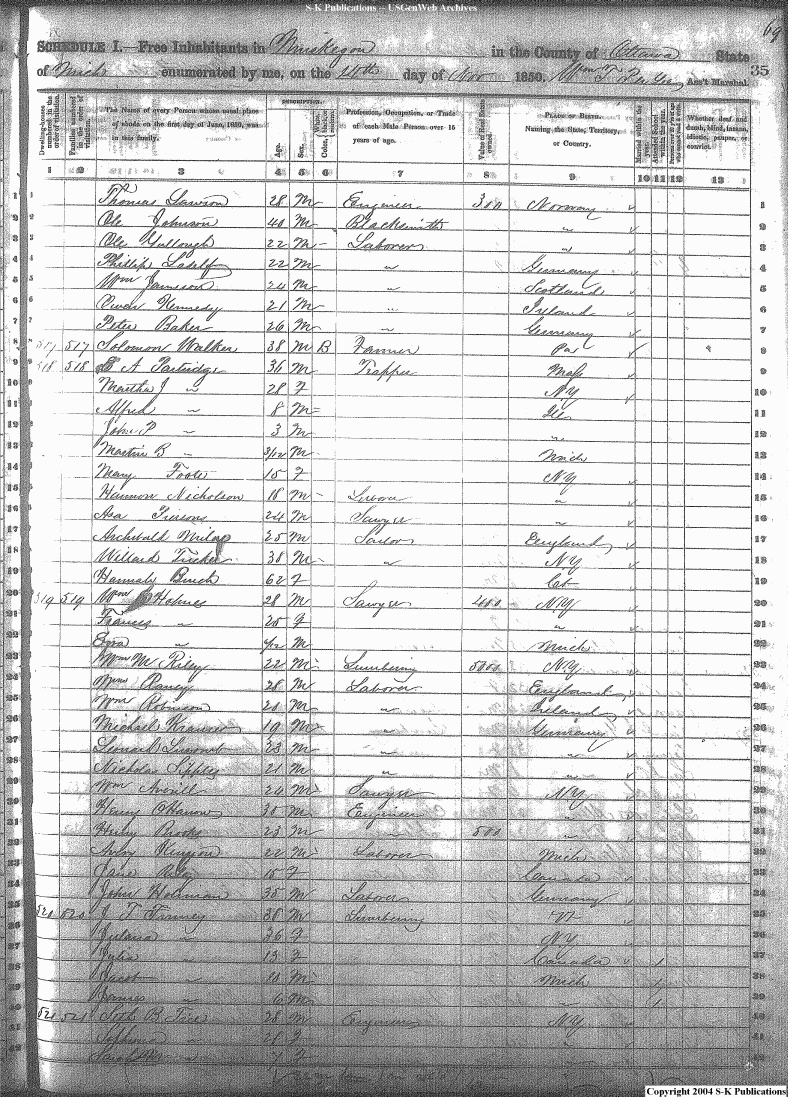 S-K Publications -- USGenWeb Archives
69
SCHEDULE I.—Free Inhabitants in Muskegon in the County of Ottawa State
of Mich enumerated by me, on the 14th day of Nov 1850. Wm T. Ass't Marshal. 35
Dwelling-houses numbered in the order of visitation.
Families numbered in the order of visitation.
The Name of every Person whose usual place of abode on the first day of June, 1850, was in this family.
DESCRIPTION.
Age.
Sex.
Profession, Occupation, or Trade of each Male Person over 15 years of age.
Value of Real Estate owned.
PLACE OF BIRTH. Naming the State, Territory, or Country.
Married within the year.
Attended School within the year.
Whether deaf and dumb, blind, insane, idiotic, pauper, or convict.
1 2 3 4 5 6 7 8 9 10 11 12 13
1 Thomas Lawson 28 M Engineer 300 Norway 1
2 Ole Johnson 40 M Blacksmith " 2
3 Ole Gullough 22 M Laborer " 3
4 Phillip 22 M " Germany 4
5 Wm Jameson 24 M " Scotland 5
6 Owen Kennedy 21 M " Ireland 6
7 Peter Baker 26 M " Germany 7
8 517 517 Solomon Walker 38 M B Farmer Pa 8
9 518 518 A Partridge 36 M Trapper Mass 9
10 Martha J " 28 F NY 10
11 Alfred " 8 M Ill 11
12 John P " 3 M " 12
13 Martin B " 3/12 M Mich 13
14 Mary Foote 15 F NY 14
15 Harmon Nicholson 18 M " 15
16 Asa Parsons 24 M Sawyer " 16
17 Archibald 25 M Sailor England 17
18 Willard Tucker 38 M " NY 18
19 Hannah Burch 62 F Ct 19
20 519 519 Wm Holmes 28 M Sawyer NY 20
21 Frances " 25 F " 21
22 Ezra " M Mich 22
23 Wm M Riley 22 M Lumbering 5000 NY 23
24 Wm Raney 28 M Laborer England 24
25 Wm Robinson 20 M " Ireland 25
26 Michael 19 M " Germany 26
27 23 M " " 27
28 Nicholas Sipples 21 M " " 28
29 Wm Averill 24 M Sawyer NY 29
30 Henry 35 M Engineer " 30
31 Brooks 23 M " 500 " 31
32 Kenyon 22 M Laborer Mich 32
33 Jane Riley 15 F Canada 33
34 John Holman 35 M Laborer Germany 34
35 520 520 J T Finney 38 M Lumbering VT 35
36 " 36 F NY 36
37 Julia " 13 F Canada 1 37
38 Jacob " 10 M Mich 1 38
39 James " 6 M " 1 39
40 521 521 Seth B Tice 28 M Engineer NY 40
41 Sophronia " 28 F " 41
42 Sarah M " 7 F " 42
Copyright 2004 S-K Publications